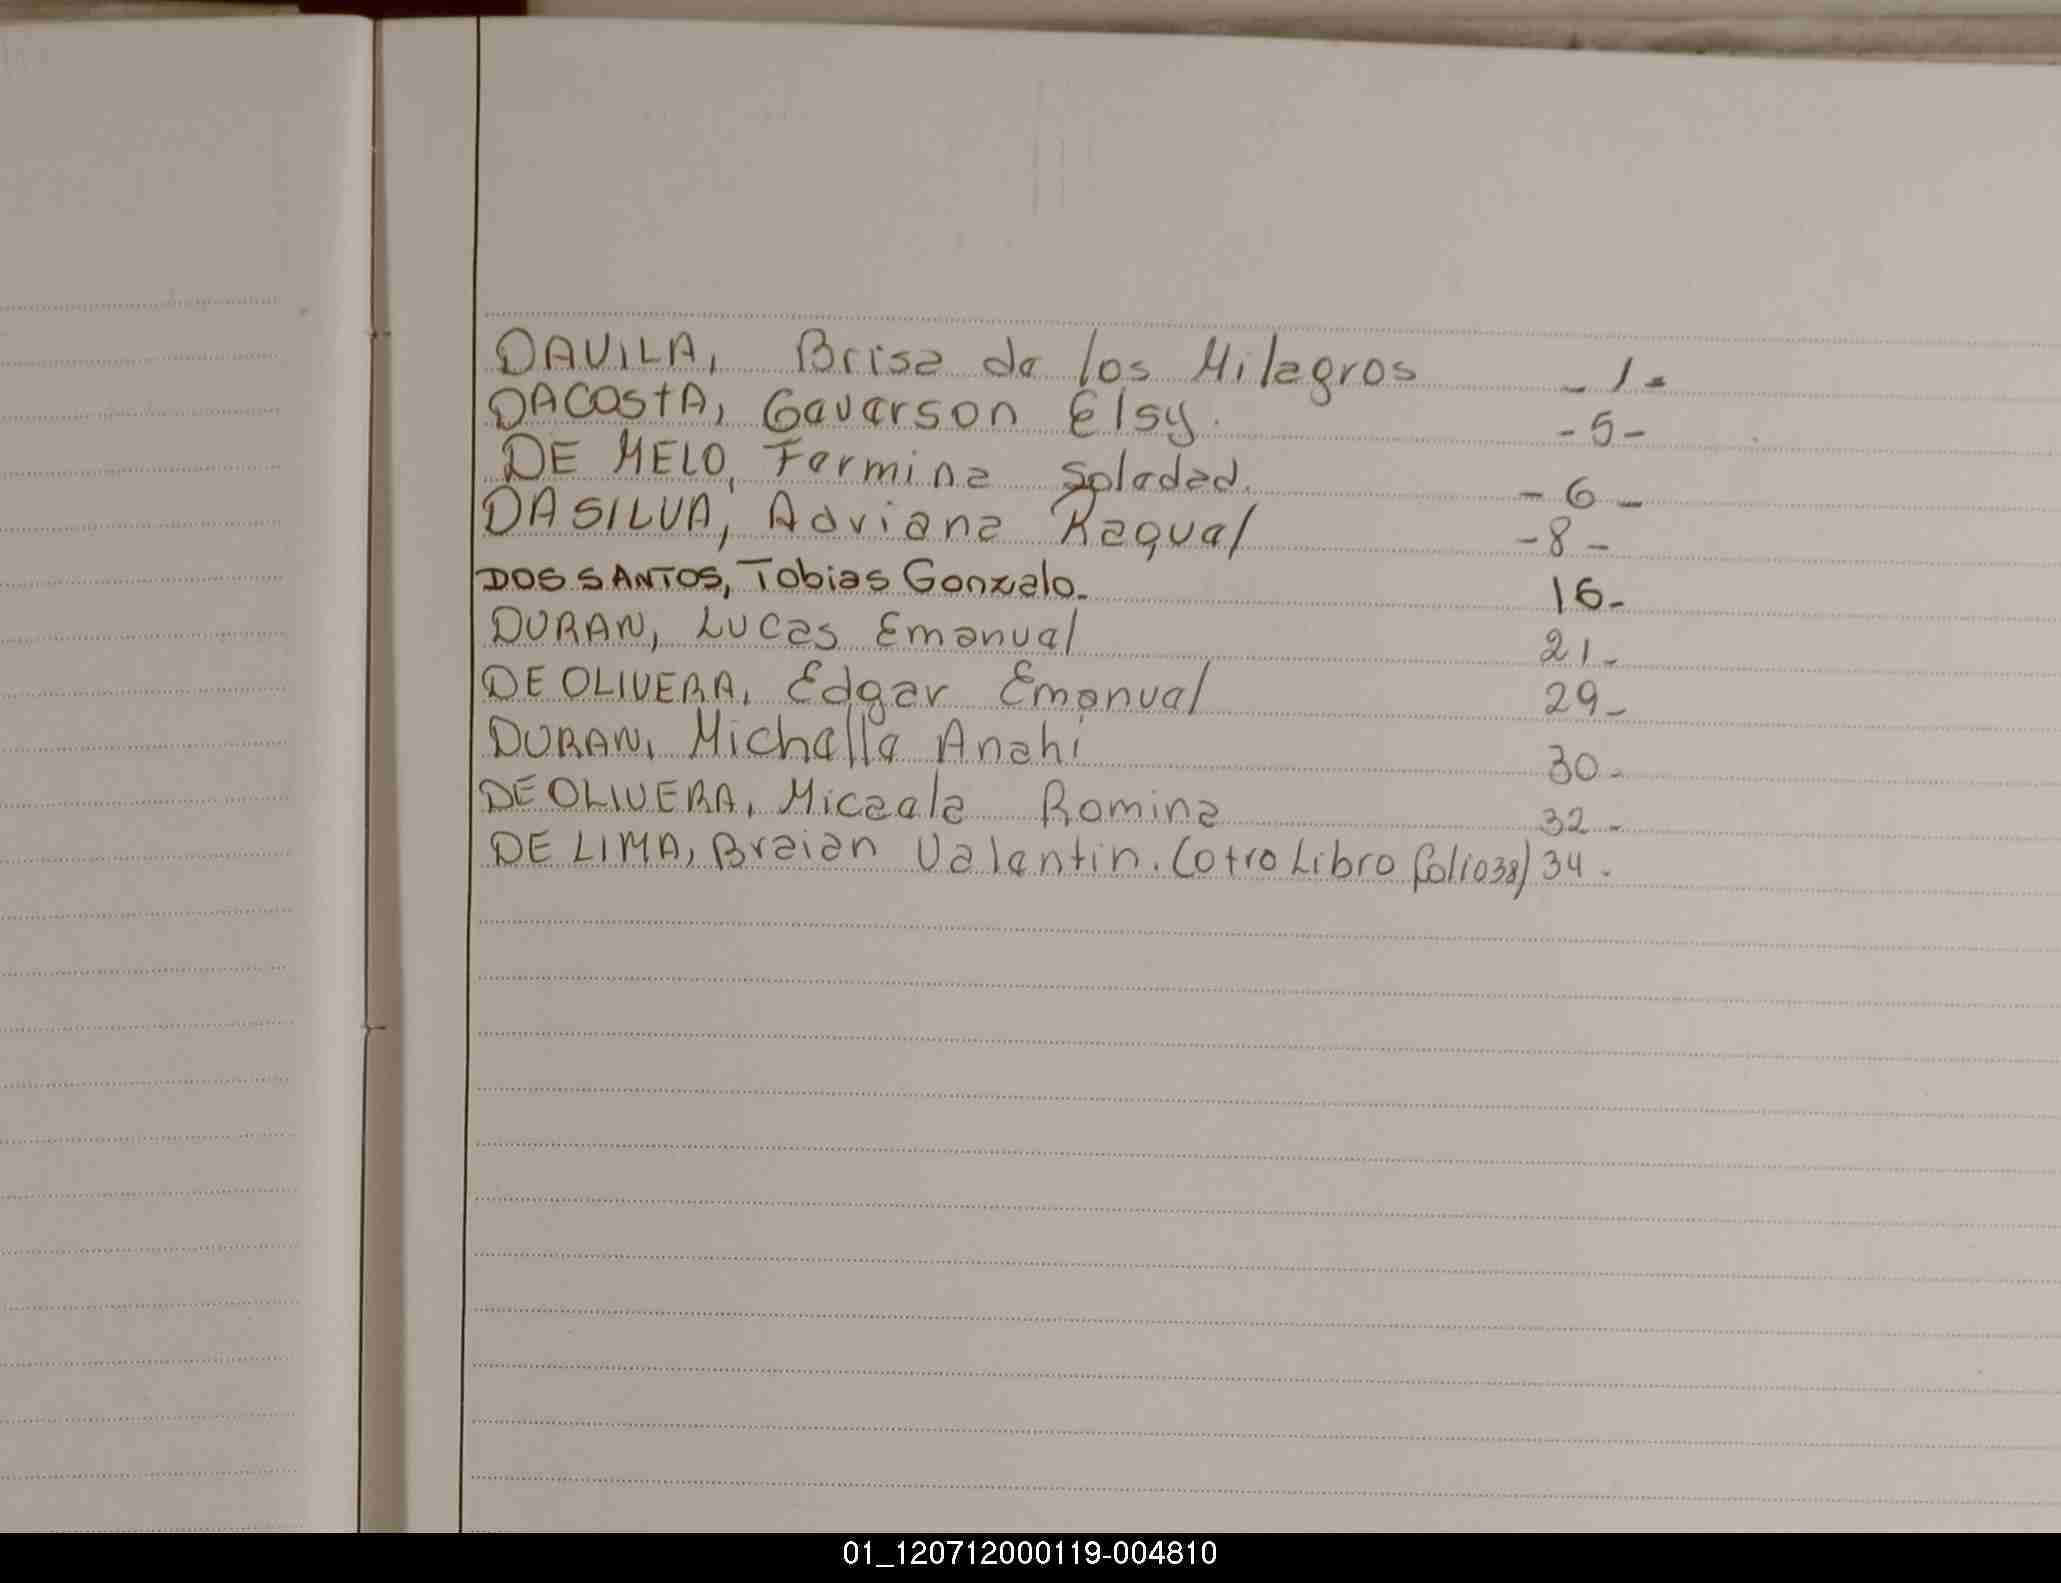 DAVILA, Brisa de los Milagros - 1 -
DACOSTA, Gaverson Elsy. - 5 -
DE MELO, Fermina Soledad. - 6 -
DA SILVA, Adriana Raquel - 8 -
DOS SANTOS, Tobias Gonzalo. 16-
DURAN, Lucas Emanuel 21-
DE OLIVERA, Edgar Emanuel 29-
DURAN, Michelle Anahi 30-
DE OLIVERA, Micaela Romina 32-
DE LIMA, Braian Valentin. (otro Libro folio 38) 34-
01_120712000119-004810